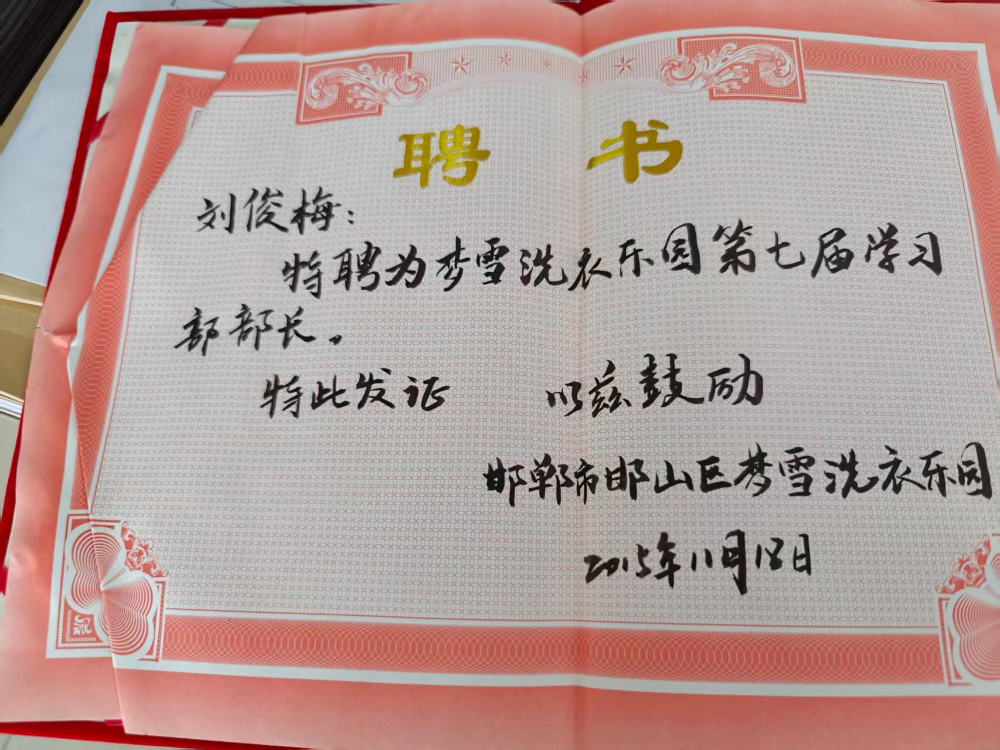 聘书
刘俊梅：
特聘为梦雪洗衣乐园第七届学习
部部长。
特此发证 以兹鼓励
邯郸市邯山区梦雪洗衣乐园
2015年11月18日